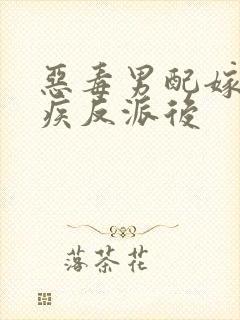 惡毒男配嫁
疾反派後
落茶花